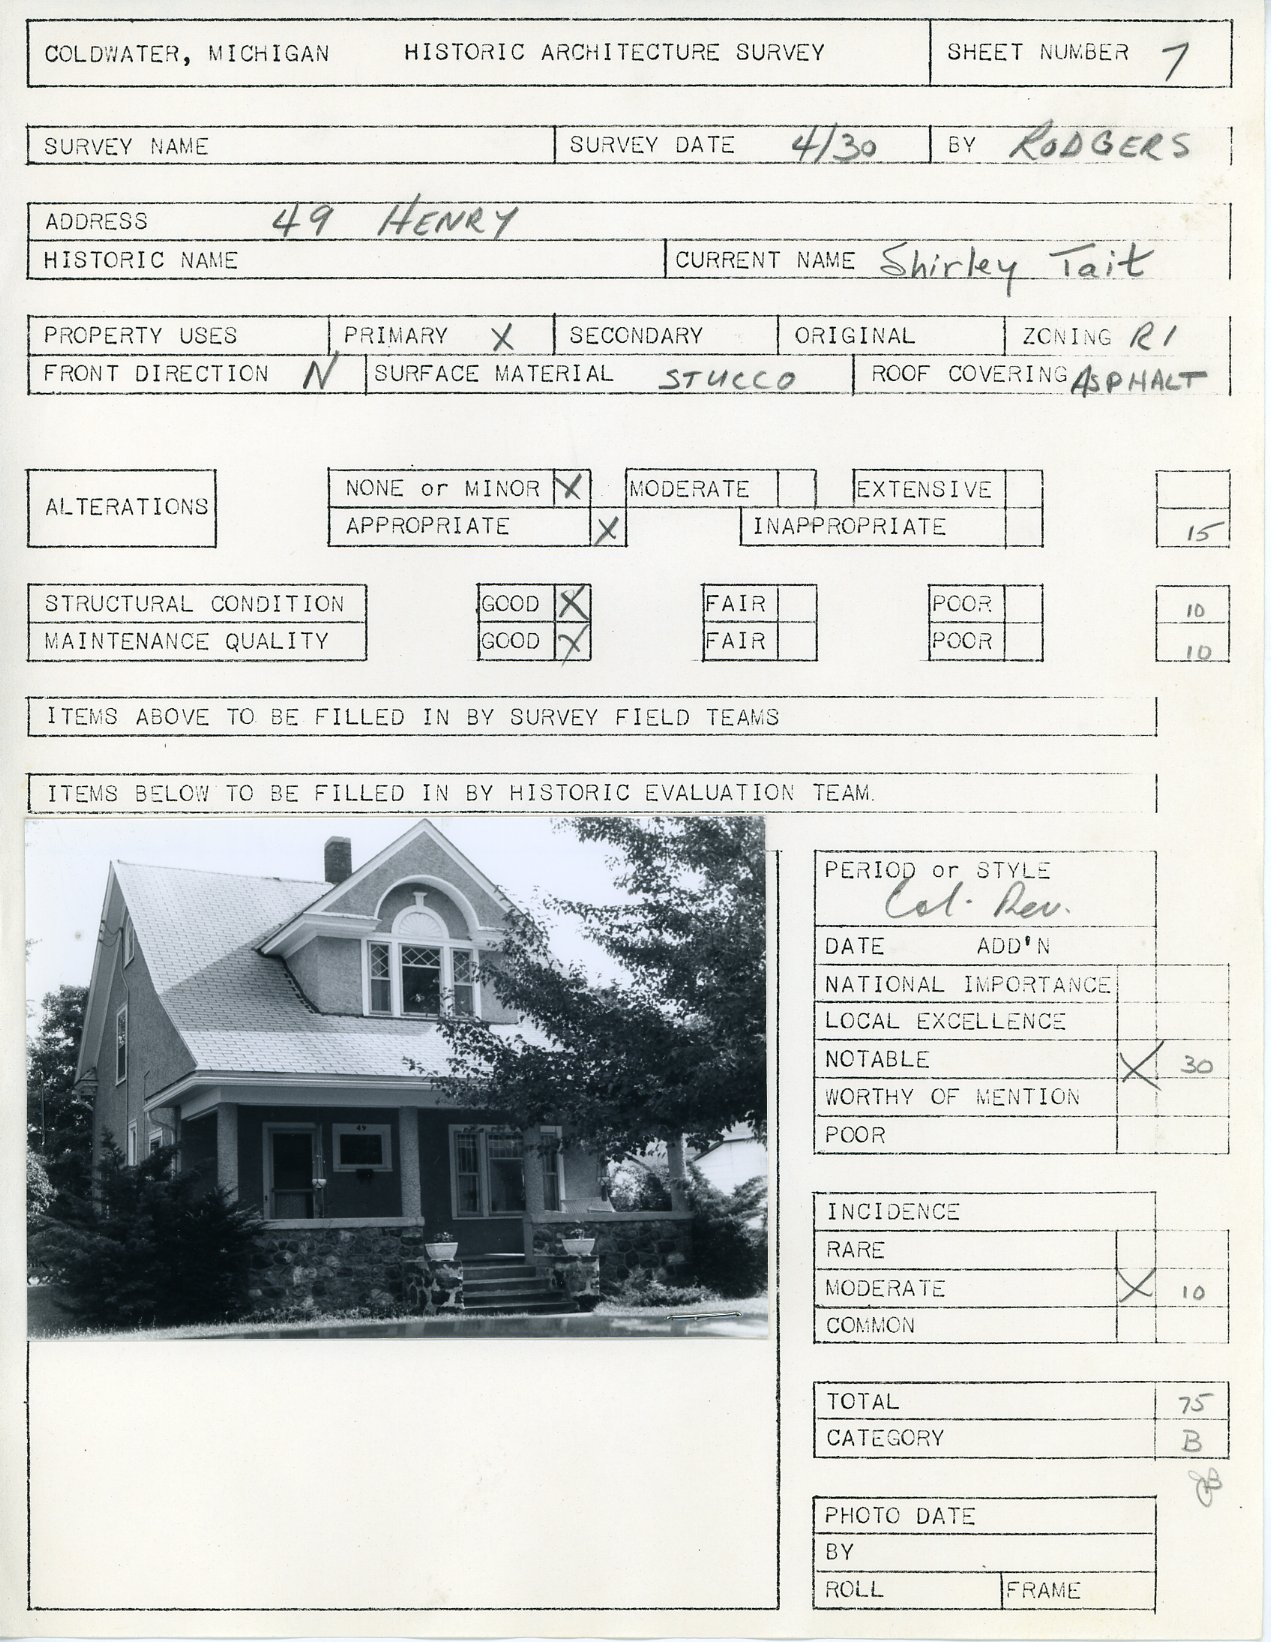 COLDWATER, MICHIGAN HISTORIC ARCHITECTURE SURVEY SHEET NUMBER 7
SURVEY NAME SURVEY DATE 4/30 BY RODGERS
ADDRESS 49 HENRY
HISTORIC NAME CURRENT NAME Shirley Tait
PROPERTY USES PRIMARY X SECONDARY ORIGINAL ZONING R1
FRONT DIRECTION N SURFACE MATERIAL STUCCO ROOF COVERING ASPHALT
ALTERATIONS NONE or MINOR X MODERATE EXTENSIVE
APPROPRIATE X INAPPROPRIATE 15
STRUCTURAL CONDITION GOOD X FAIR POOR 10
MAINTENANCE QUALITY GOOD X FAIR POOR 10
ITEMS ABOVE TO BE FILLED IN BY SURVEY FIELD TEAMS
ITEMS BELOW TO BE FILLED IN BY HISTORIC EVALUATION TEAM.
49
PERIOD or STYLE
Col. Rev.
DATE ADD'N
NATIONAL IMPORTANCE
LOCAL EXCELLENCE
NOTABLE X 30
WORTHY OF MENTION
POOR
INCIDENCE
RARE
MODERATE X 10
COMMON
TOTAL 75
CATEGORY B
PHOTO DATE
BY
ROLL FRAME